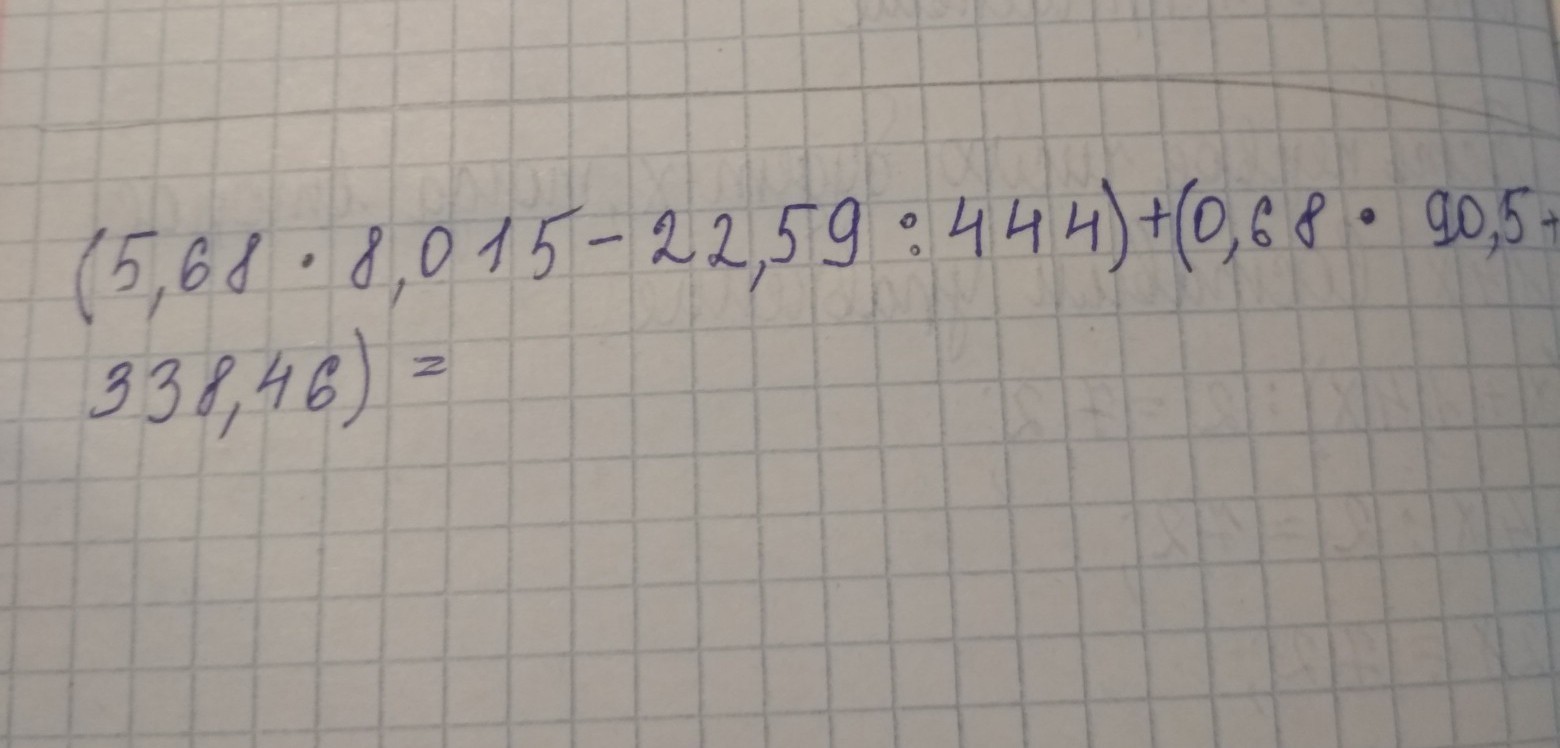 (5,68 · 8,015 - 22,59 : 444) + (0,68 · 90,5 +
338,46) =